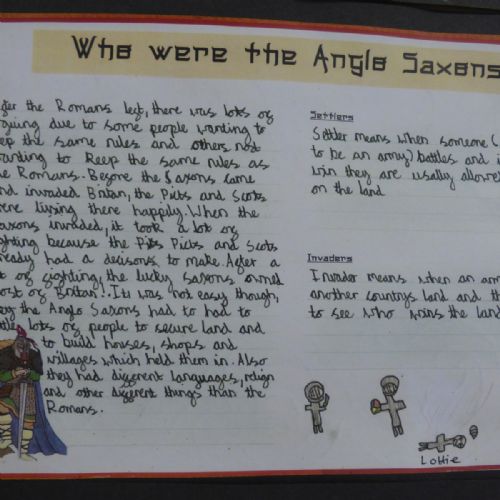 Who were the Anglo Saxons
fter the Romans left, there was lots of
guing due to some people wanting to
eep the same rules and others not
anting to keep the same rules as
he Romans. Before the Saxons came
nd invaded Britan, the Picts and Scots
ere living there happily. When the
axons invaded, it took a lot of
ghting because the Pits Picts and Scots
ready had a decisons to make. After a
ot of fighting, the lucky saxons owned
ost of Britan!. It was not easy though,
hey the Anglo Saxons had to had to
ttle, lots of people to secure land and
to build houses, shops and
villages which held them in. Also
they had different languages, reigion
and other different things than the
Romans.
Settlers
Settler means when someone (
to be an army) battles and i
win they are usally allowe
on the land
Invaders
Invader means when an arm
another countrys land and th
to see who wins the land
Lottie